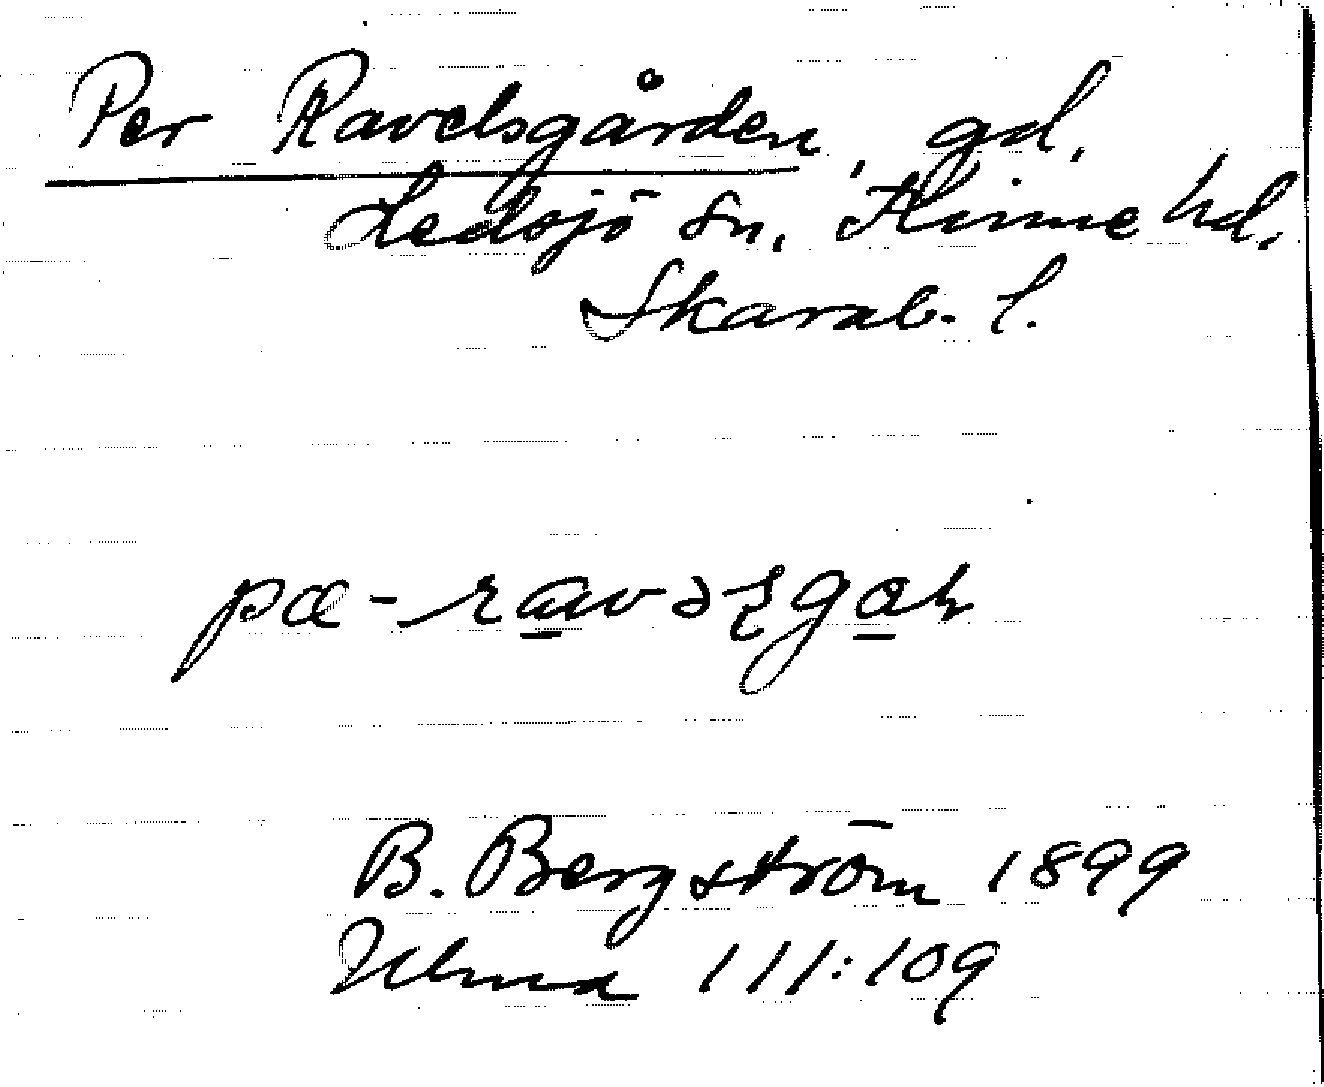 Per Ravelsgården, gd.
Ledsjö sn, Kinne hd.
Skarab. l.
pæ-ravə
B. Bergström 1899
Ulma 111:109